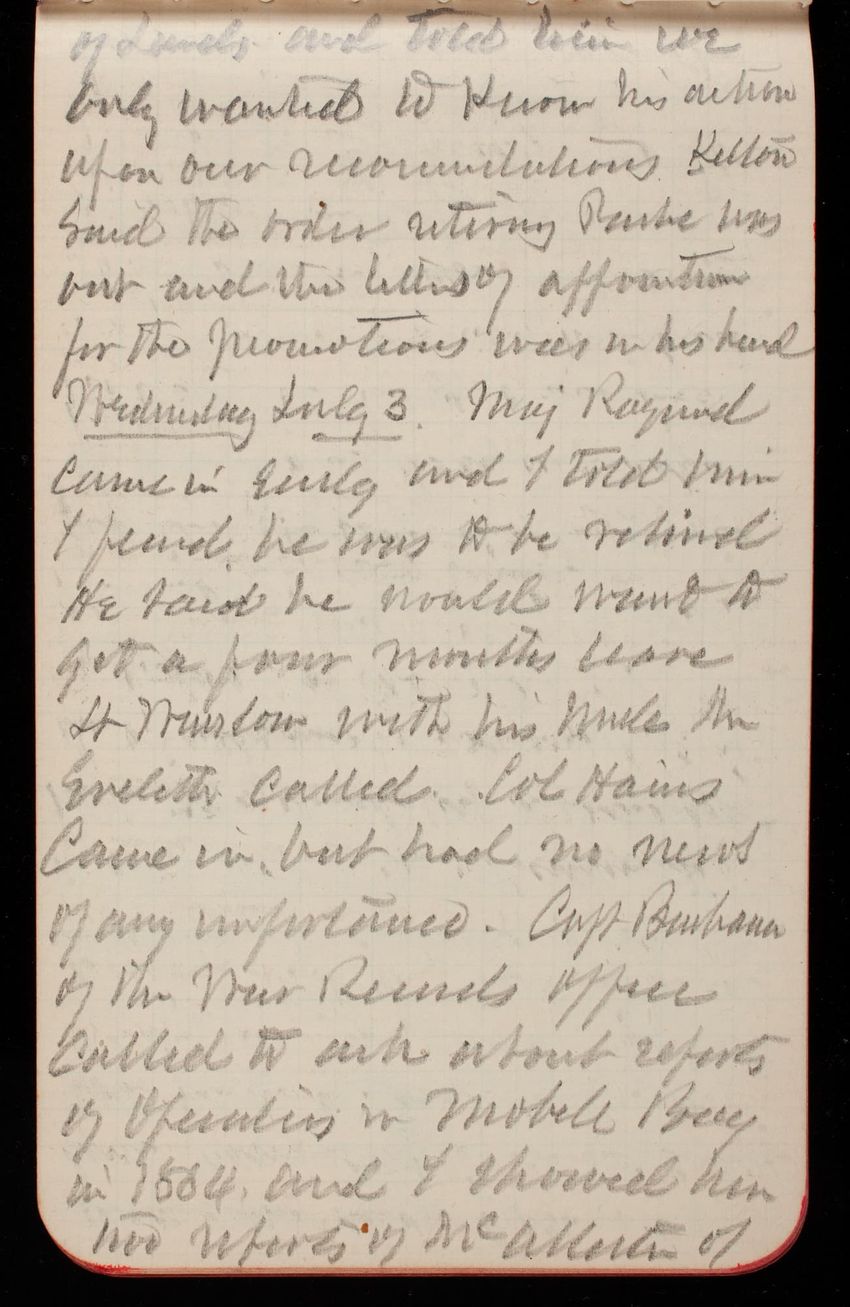 of Lands and told him we
only wanted to know his action
upon our recommendations. Kelton
said the order retiring Parke was
out and the letters of appointm
for the promotions was in his hand
Wednesday July 3. Maj Raymond
came in early and I told him
I feared he was to be retired
He said he would want to
get a four months leave
Lt Winslow with his Uncle Mr
Eveleth called. Col Hains
Came in, but had no news
of any importance. Capt
of the War Records office
Called to ask about reports
of Operations in Mobile Bay
in 1864. and I showed him
two reports of McAllester of